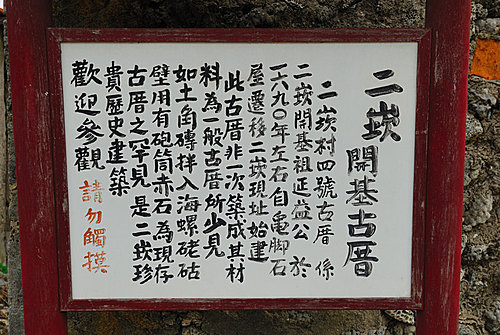 二崁 開基古厝
二崁村四號古厝 係
二崁開基祖延益公 於
一六九〇年左右自龜腳石
屋遷移二崁現址始建
此古厝非一次築成其材
料為一般古厝所少見
如土角磚拌入海螺硓砧
壁用有砲筒赤石為現存
古厝之罕見是二崁珍
貴歷史建築
歡迎參觀 請勿觸摸